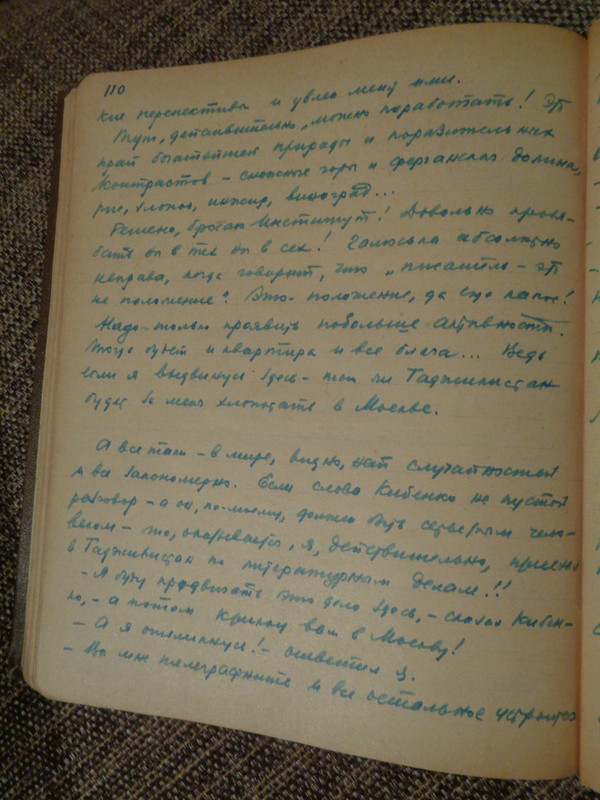 110
кие перспективы и увлек меня ими.
Тут, действительно, можно поработать! Это
край богатейшей природы и поразительных
контрастов - снежные горы и ферганская долина,
рис, хлопок, инжир, виноград...
Решено, бросаю Институт! Довольно пребы-
вать ни в тех ни в сех! Галюська абсолютно
неправа, когда говорит, что "писатель - это
не положение". Это - положение, да еще какое!
Надо только проявить побольше активности.
Тогда будет и квартира и все блага... Ведь
если я выдвинусь здесь - тот же Таджикистан
будет за меня хлопотать в Москве.
А все таки - в мире, видно, нет случайностей
и все закономерно. Если слова Кибенко не пустой
разговор - а он, по-моему, должен быть серьезным чело-
веком - то, оказывается, я, действительно, приехал
в Таджикистан по литературным делам!!
- Я буду продвигать это дело здесь, - сказал Кибен-
ко, - а потом крикну вам в Москву!
- А я откликнусь! - ответил я.
- Вы мне телеграфните и все остальное устроится